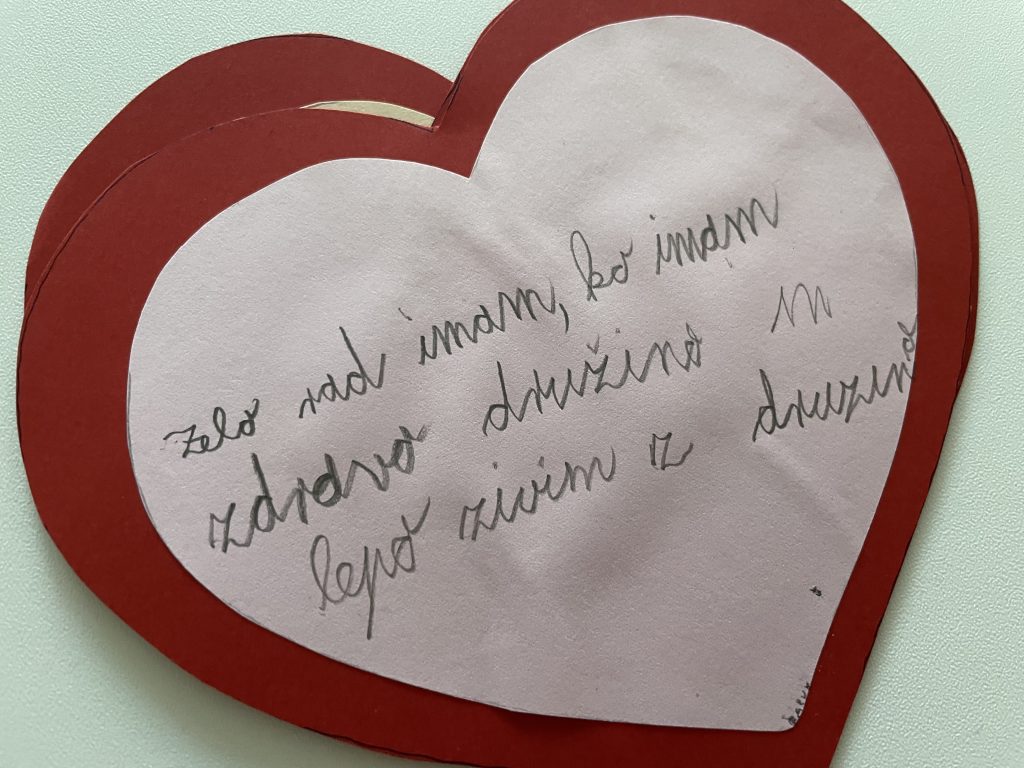 zelo rad imam, ko imam
zdravo družino in
lepo zivim z druzino